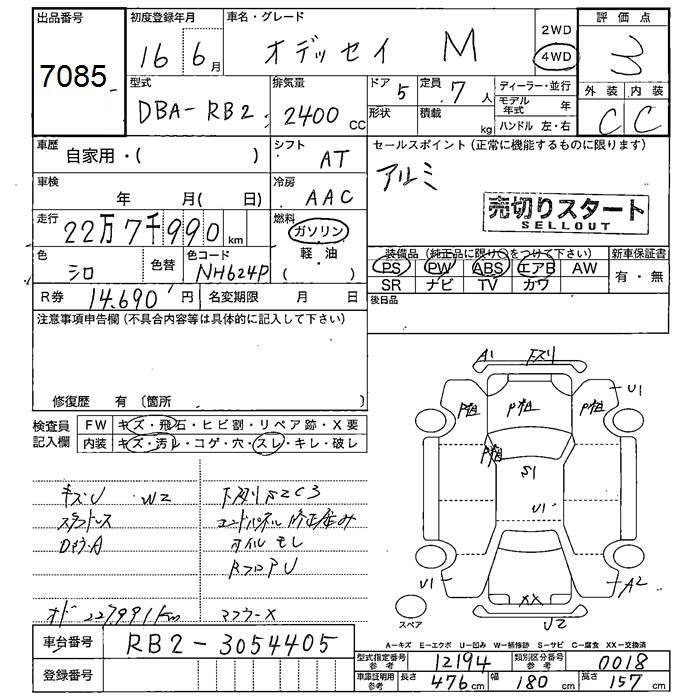 出品番号
7085
初度登録年月
16年6月
車名・グレード
オデッセイ M
2WD
4WD
評価点
3
型式
DBA-RB2
排気量
2400 cc
ドア
5
形状
定員
7人
積載
kg
ディーラー・並行
モデル年式 年
ハンドル 左・右
外装
内装
C
C
車歴
自家用・( )
シフト
AT
セールスポイント(正常に機能するものに限ります)
アルミ
売切りスタート
SELLOUT
車検
年 月( 日)
冷房
AAC
走行
22万7千990 km
燃料
ガソリン
(軽・油)
色
シロ
色替
色コード
NH624P
装備品(純正品に限り○をつけて下さい)
PS PW ABS エアB AW
SR ナビ TV カワ
新車保証書
有・無
R券
14.690円
名変期限 月 日
後日品
注意事項申告欄(不具合内容等は具体的に記入して下さい)
修復歴 有(箇所 )
検査員記入欄
FW キズ・飛石・ヒビ割・リペア跡・X要
内装 キズ・汚レ・コゲ・穴・スレ・キレ・破レ
A1
U1
S1
U1
U1
XX
A2
U2
キズU W2
スタットレス
オイルモレ
オド 227991km
マフラーX
スペア
A-キズ E-エクボ U-凹み W-補修跡 S-サビ C-腐食 XX-交換済
車台番号
RB2-3054405
登録番号
型式指定番号 参考
12194
類別区分番号 参考
0018
車庫証明用 参考
長さ 476cm
幅 180cm
高さ 157cm